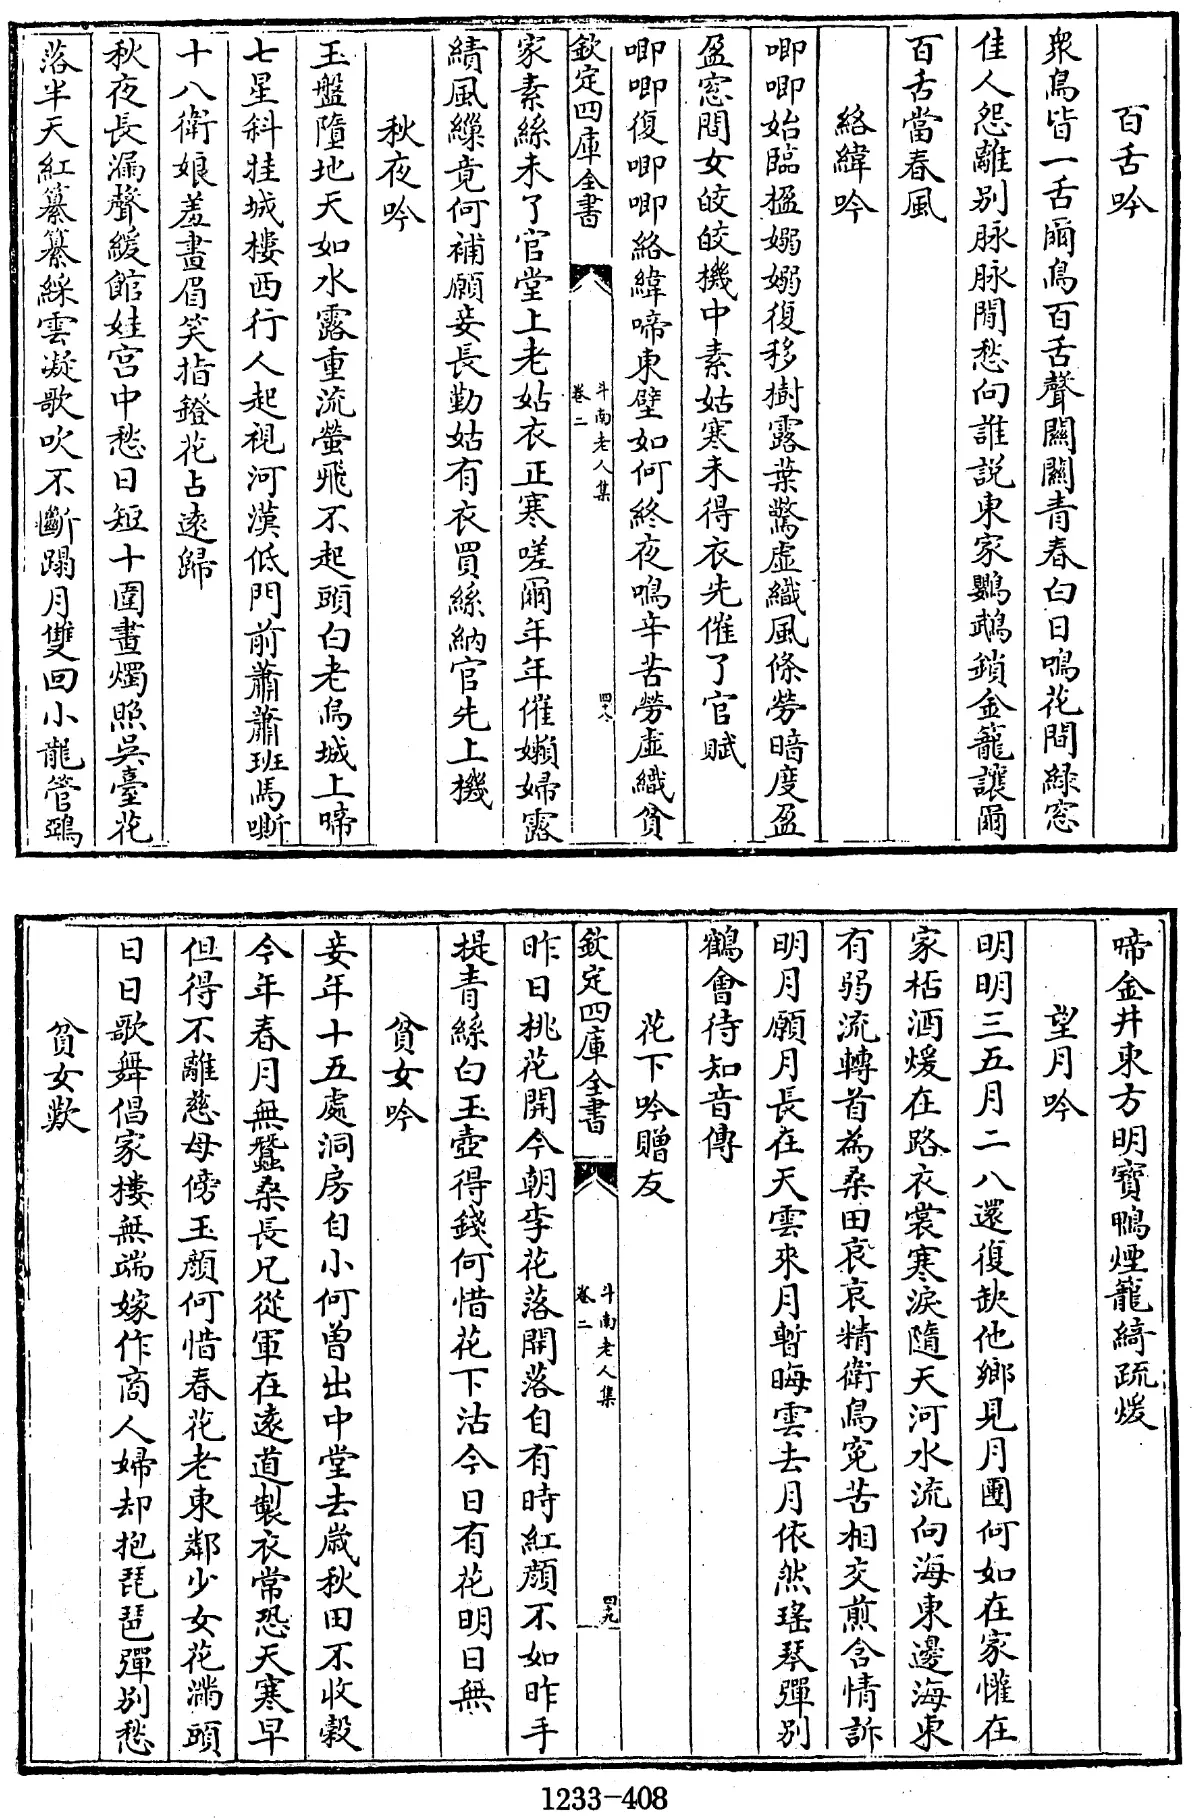 百舌吟
衆鳥皆一舌爾鳥百舌聲關關青春白日鳴花間綠窓
佳人怨離别脉脉閒愁向誰説東家鸚鵡鎖金籠讓爾
百舌當春風
絡緯吟
唧唧始臨楹嫋嫋復移樹露葉驚虚織風條勞暗度盈
盈窓間女皎皎機中素姑寒未得衣先催了官賦
唧唧復唧唧絡緯啼東壁如何終夜鳴辛苦勞虚織貧
欽定四庫全書
斗南老人集
卷二
四十八
家素絲未了官堂上老姑衣正寒嗟爾年年催嬾婦露
績風繅竟何補願妾長勤姑有衣買絲納官先上機
秋夜吟
玉盤墮地天如水露重流螢飛不起頭白老烏城上啼
七星斜挂城樓西行人起視河漢低門前蕭蕭班馬嘶
十八衛娘羞畫眉笑指鐙花占遠歸
秋夜長漏聲緩館娃宫中愁日短十圍畫燭照吳臺花
落半天紅纂纂綵雲凝歌吹不斷蹋月雙回小龍管鵶
啼金井東方明寶鴨煙籠綺疏煖
望月吟
明明三五月二八還復缺他鄉見月團何如在家懽在
家栝酒煖在路衣裳寒淚隨天河水流向海東邊海東
有弱流轉首為桑田哀哀精衛鳥寃苦相交煎含情訴
明月願月長在天雲來月暫晦雲去月依然瑤琴彈别
鶴會待知音傳
花下吟贈友
欽定四庫全書
斗南老人集
卷二
四十九
昨日桃花開今朝李花落開落自有時紅顏不如昨手
提青絲白玉壺得錢何惜花下沽今日有花明日無
貧女吟
妾年十五處洞房自小何曽出中堂去歲秋田不收穀
今年春月無蠶桑長兄從軍在遠道製衣常恐天寒早
但得不離慈母傍玉顏何惜春花老東鄰少女花滿頭
日日歌舞倡家樓無端嫁作商人婦却抱琵琶彈别愁
貧女歎
1233-408